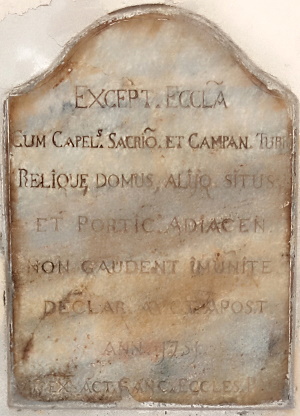 EXCEPT. ECCLÃ
CUM CAPELˢ. SACRIÕ. ET CAMPAN. TURR
RELIQUE DOMUS, ALIIQ. SITUS
ET PORTIC. ADIACEN
NON GAUDENT IMUNITE
DECLAR. APOST
ANN.
EX ACT. CANC. ECCLES.